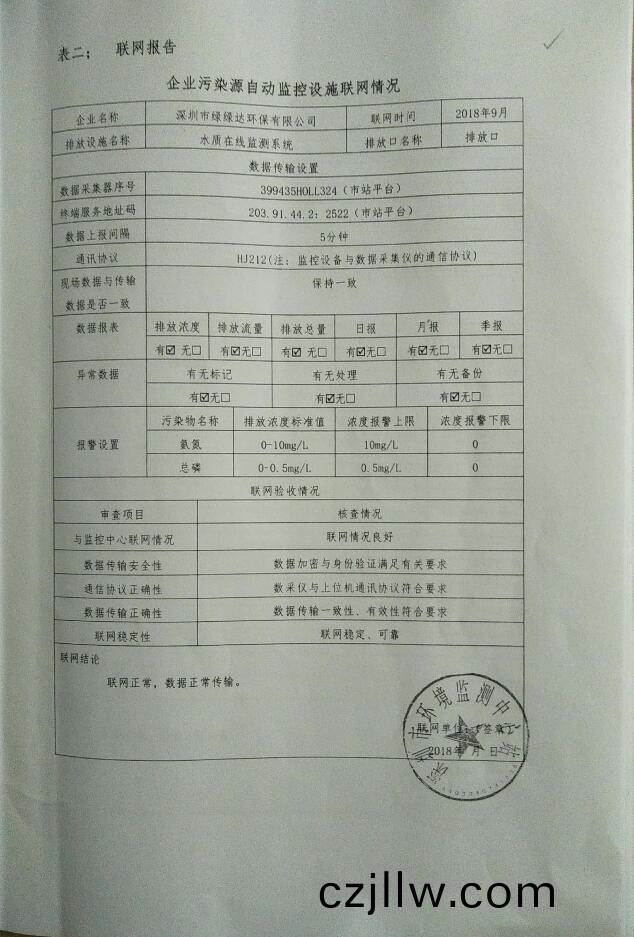 表二； 联网报告
企业污染源自动监控设施联网情况
企业名称 深圳市绿绿达环保有限公司 联网时间 2018年9月
排放设施名称 水质在线监测系统 排放口名称 排放口
数据传输设置
数据采集器序号 399435HOLL324（市站平台）
终端服务地址码 203.91.44.2：2522（市站平台）
数据上报间隔 5分钟
通讯协议 HJ212(注：监控设备与数据采集仪的通信协议)
现场数据与传输 保持一致
数据是否一致
数据报表 排放浓度 排放流量 排放总量 日报 月报 季报
有☑ 无□ 有☑无□ 有☑ 无□ 有☑无□ 有☑无□ 有☑无□
异常数据 有无标记 有无处理 有无备份
有☑无□ 有☑无□ 有☑无□
污染物名称 排放浓度标准值 浓度报警上限 浓度报警下限
报警设置 氨氮 0-10mg/L 10mg/L 0
总磷 0-0.5mg/L 0.5mg/L 0
联网验收情况
审查项目 核查情况
与监控中心联网情况 联网情况良好
数据传输安全性 数据加密与身份验证满足有关要求
通信协议正确性 数采仪与上位机通讯协议符合要求
数据传输正确性 数据传输一致性、有效性符合要求
联网稳定性 联网稳定、可靠
联网结论
联网正常，数据正常传输。
深圳市环境监测中心站
联网单位：（签章）
2018年 月 日
czjllw.com